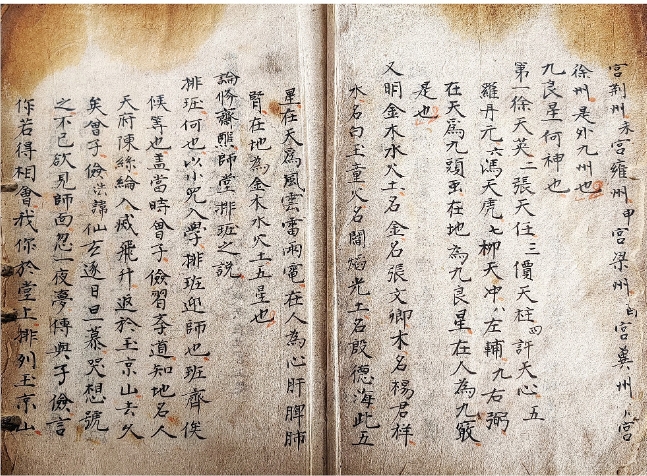 宮荆州未宮雍州申宮梁州酉宮冀州八宮
徐州是外九州也
九良星何神也
第一徐天英二張天任三價天柱四許天心五
羅丹元六馮天虎七柳天冲八左輔九右弼
在天為九頭虫在地為九良星在人為九竅
是也
又明金木水火土名金名張文卿木名楊君祥
水名白玉童火名閻焰光土名殷德海此五
星在天為風雲雷雨電在人為心肝脾肺
腎在地為金木水火土五星也
論修齋熙師堂排班之說
排班何也以小児入學排班迎師也班齊俟
候等也盖當時曾子儉習荼道知地名人
天府陳絲綸入滅飛升返於玉京山去久
矣曾子儉洪諱仙去逐日旦慕哭想號
之不已欲見師面忽一夜夢傳與子儉言
你若得相會我你於堂上排列玉京山